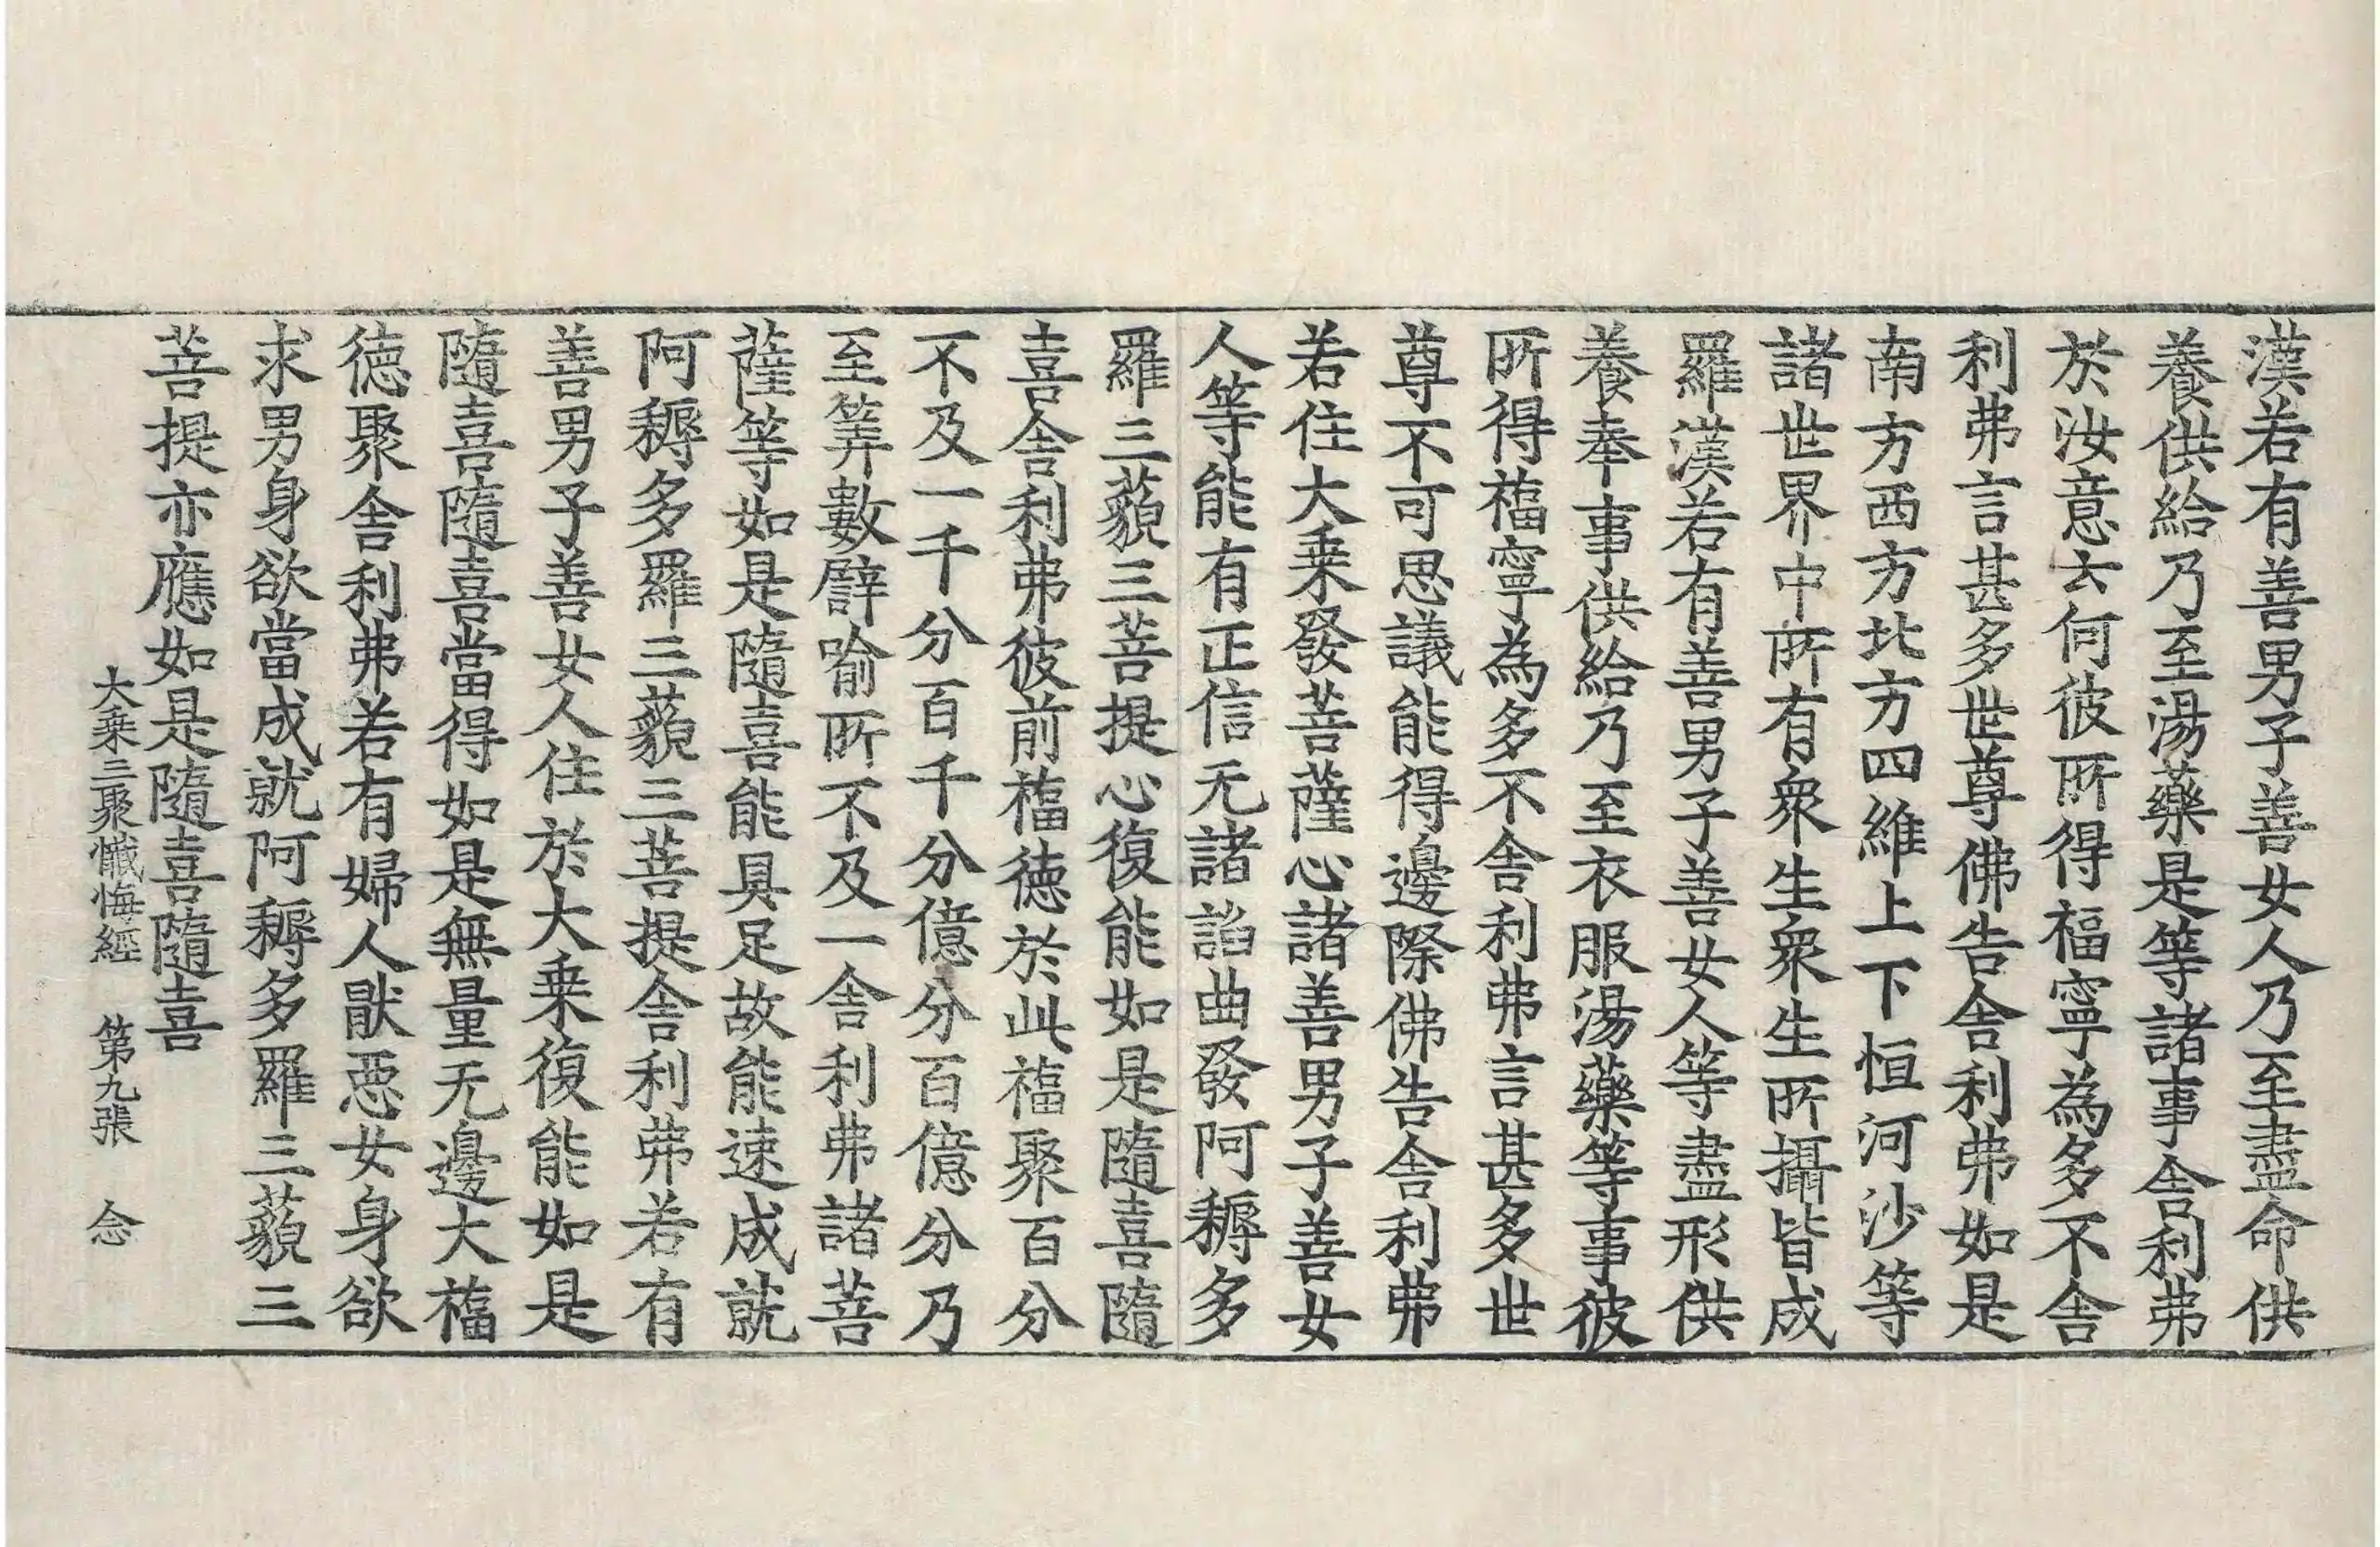 漢若有善男子善女人乃至盡命供
養供給乃至湯藥是等諸事舍利弗
於汝意云何彼所得福寧為多不舍
利弗言甚多世尊佛告舍利弗如是
南方西方北方四維上下恒河沙等
諸世界中所有衆生衆生所攝皆成
羅漢若有善男子善女人等盡形供
養奉事供給乃至衣服湯藥等事彼
所得福寧為多不舍利弗言甚多世
尊不可思議能得邊際佛告舍利弗
若住大乗發菩薩心諸善男子善女
人等能有正信无諸諂曲發阿耨多
羅三藐三菩提心復能如是隨喜隨
喜舍利弗彼前福德於此福聚百分
不及一千分百千分億分百億分乃
至筭數譬喻所不及一舍利弗諸菩
薩等如是隨喜能具足故能速成就
阿耨多羅三藐三菩提舍利弗若有
善男子善女人住於大乗復能如是
隨喜隨喜當得如是無量无邊大福
德聚舍利弗若有婦人猒惡女身欲
求男身欲當成就阿耨多羅三藐三
菩提亦應如是隨喜隨喜
大乗三聚懺悔經　第九張　念